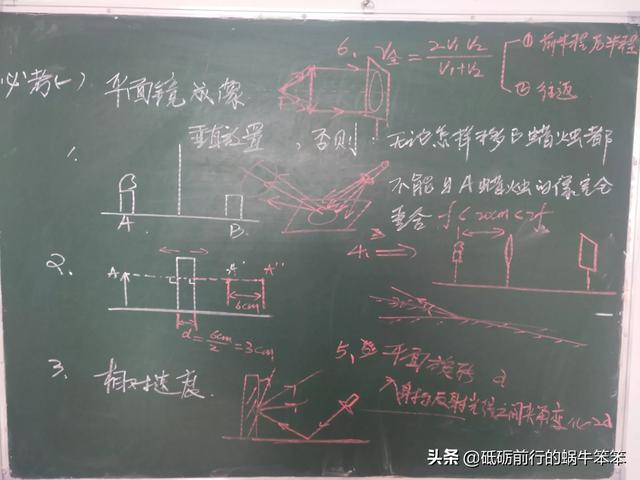 6、V全 = 2V₁V₂ / V₁+V₂
① 前半程后半程
② 往返
必考(一) 平面镜成像
1.
垂直放置，否则：无论怎样移动B蜡烛都
不能与A蜡烛的像完全
重合
f < 20cm < 2f
A
B
2.
A
A'
A''
6cm
d = 6cm / 2 = 3cm
3.
相对速度
4.
5、平面旋转 α
入射与反射光线之间夹角变化2α
头条 @砥砺前行的蜗牛笨笨